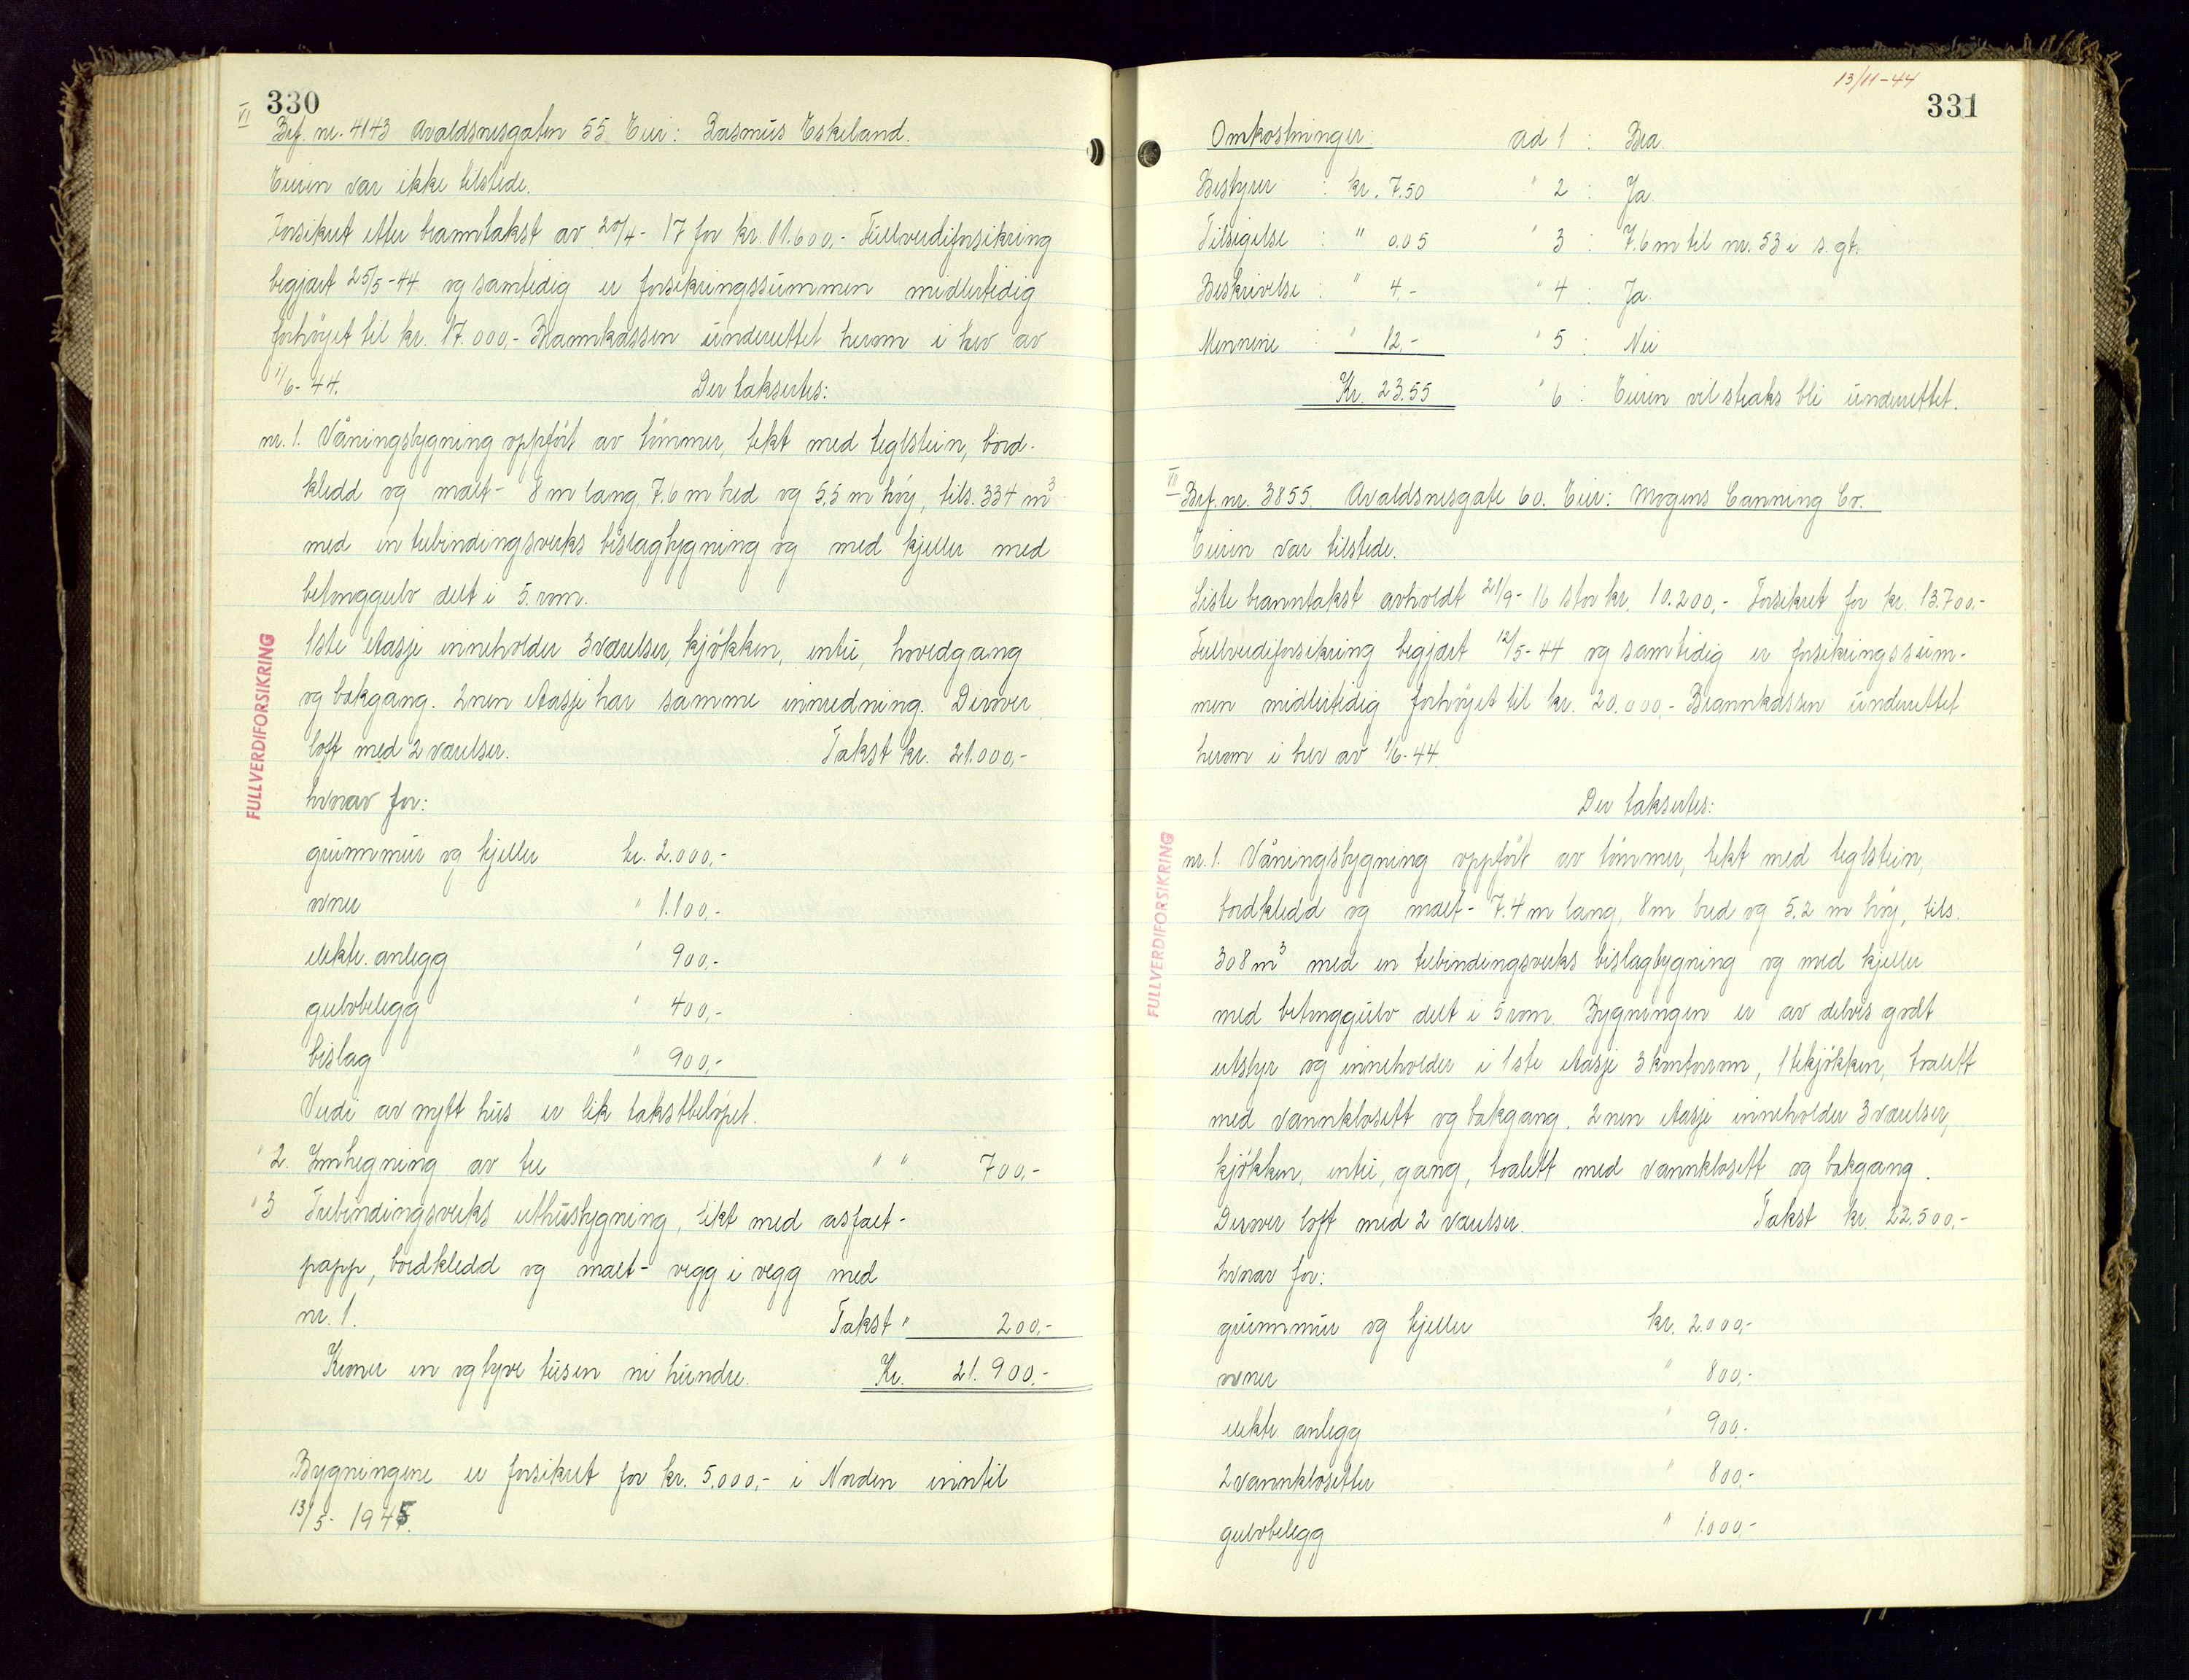 330
VI Brf. nr. 4143 Avaldsnesgaten 55 Eier: Rasmus Eskeland.
Eieren var ikke tilstede.
Forsikret etter branntakst av 20/4-17 for kr. 11.600,- Fullverdiforsikring
begjært 25/5-44 og samtidig er forsikringssummen midlertidig
forhöyet til kr. 17.000,- Brannkassen underrettet herom i brev av
1/6-44. Der taksertes:
nr. 1. Våningsbygning oppfört av tömmer, tekt med teglstein, bord-
kledd og malt - 8 m lang, 7.6 m bred og 5,5 m höy, tils. 334 m³
med en trebindingsverks bislagbygning og med kjeller med
betonggulv delt i 5. rom.
1ste etasje inneholder 3 værelser, kjökken, entré, hovedgang
og bakgang. 2nen etasje har samme innredning. Derover
loft med 2 værelser. Takst kr. 21.000,-
hvorav for:
grunnmur og kjeller kr. 2.000,-
ovner " 1.100,-
elektr. anlegg " 900,-
gulvbelegg " 400,-
bislag " 900,-
Verdi av nytt hus er lik takstbelöpet.
" 2. Innhegning av tre " " 700,-
" 3 Trebindingsverks uthusbygning, tekt med asfalt-
papp, bordkledd og malt - vegg i vegg med
nr. 1. Takst " 200,-
Kroner en og tyve tusen ni hundre. Kr. 21.900,-
Bygningene er forsikret for kr. 5.000,- i Norden inntil
13/5-1945.
FULLVERDIFORSIKRING
13/11-44
331
Omkostninger: ad 1 : Bra.
Bestyrer : kr. 7.50 " 2 : Ja.
Tilsigelse : " 0.05 " 3 : 7.6 m til nr. 53 i s. gt.
Beskrivelse : " 4,- " 4 : Ja.
Mennene : " 12,- " 5 : Nei
Kr. 23.55 " 6 : Eieren vil straks bli underrettet.
VII Brf. nr. 3855. Avaldsnesgate 60. Eier: Mogens Canning Co.
Eieren var tilstede.
Siste branntakst avholdt 21/9-16 stor kr. 10.200,- Forsikret for kr. 13.700,-
Fullverdiforsikring begjært 12/5-44 og samtidig er forsikringssum-
men midlertidig forhöyet til kr. 20.000,- Brannkassen underrettet
herom i brev av 1/6-44.
Der taksertes:
nr. 1. Våningsbygning oppfört av tömmer, tekt med teglstein,
bordkledd og malt - 7.4 m lang, 8 m bred og 5,2 m höy, tils.
308 m³ med en trebindingsverks bislagbygning og med kjeller
med betonggulv delt i 5 rom. Bygningen er av delvis godt
utstyr og inneholder i 1ste etasje 3 kontorrom, 1 tekjökken, toalett
med vannklosett og bakgang. 2nen etasje inneholder 3 værelser,
kjökken, entré, gang, toalett med vannklosett og bakgang.
Derover loft med 2 værelser. Takst kr. 22.500,-
hvorav for:
grunnmur og kjeller kr. 2.000,-
ovner " 800,-
elektr. anlegg " 900,-
2 vannklosetter " 800,-
gulvbelegg " 1.000,-
FULLVERDIFORSIKRING